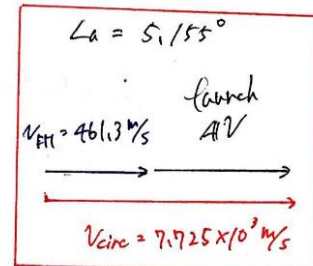 La = 5.155°
launch
V_EH = 461.3 m/s ΔV
Vcirc = 7.725 × 10³ m/s